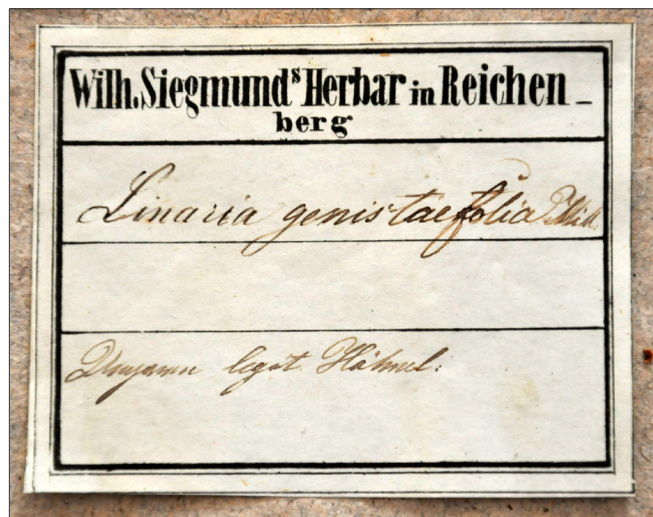 Wilh. Siegmund's Herbar in Reichen-
berg
Linaria genistaefolia Mill.
Ungarn legit Hähnel.